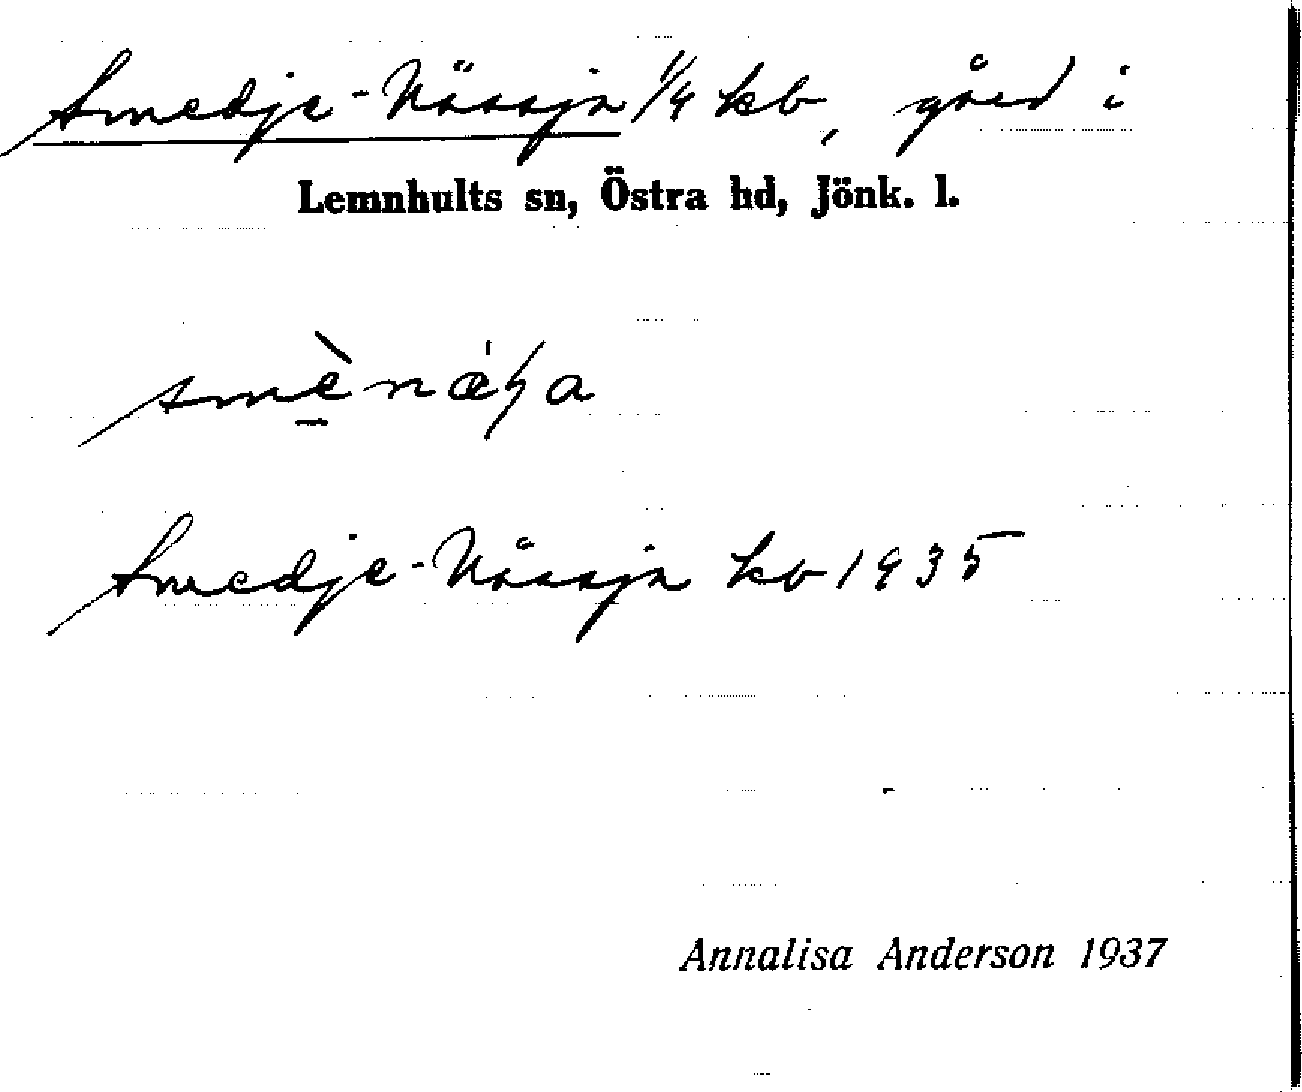 Smedje-Nässja 1/4 kb, gård i
Lemnhults sn, Östra hd, Jönk. l.
Smedje-Nåssja kb 1935
Annalisa Anderson 1937